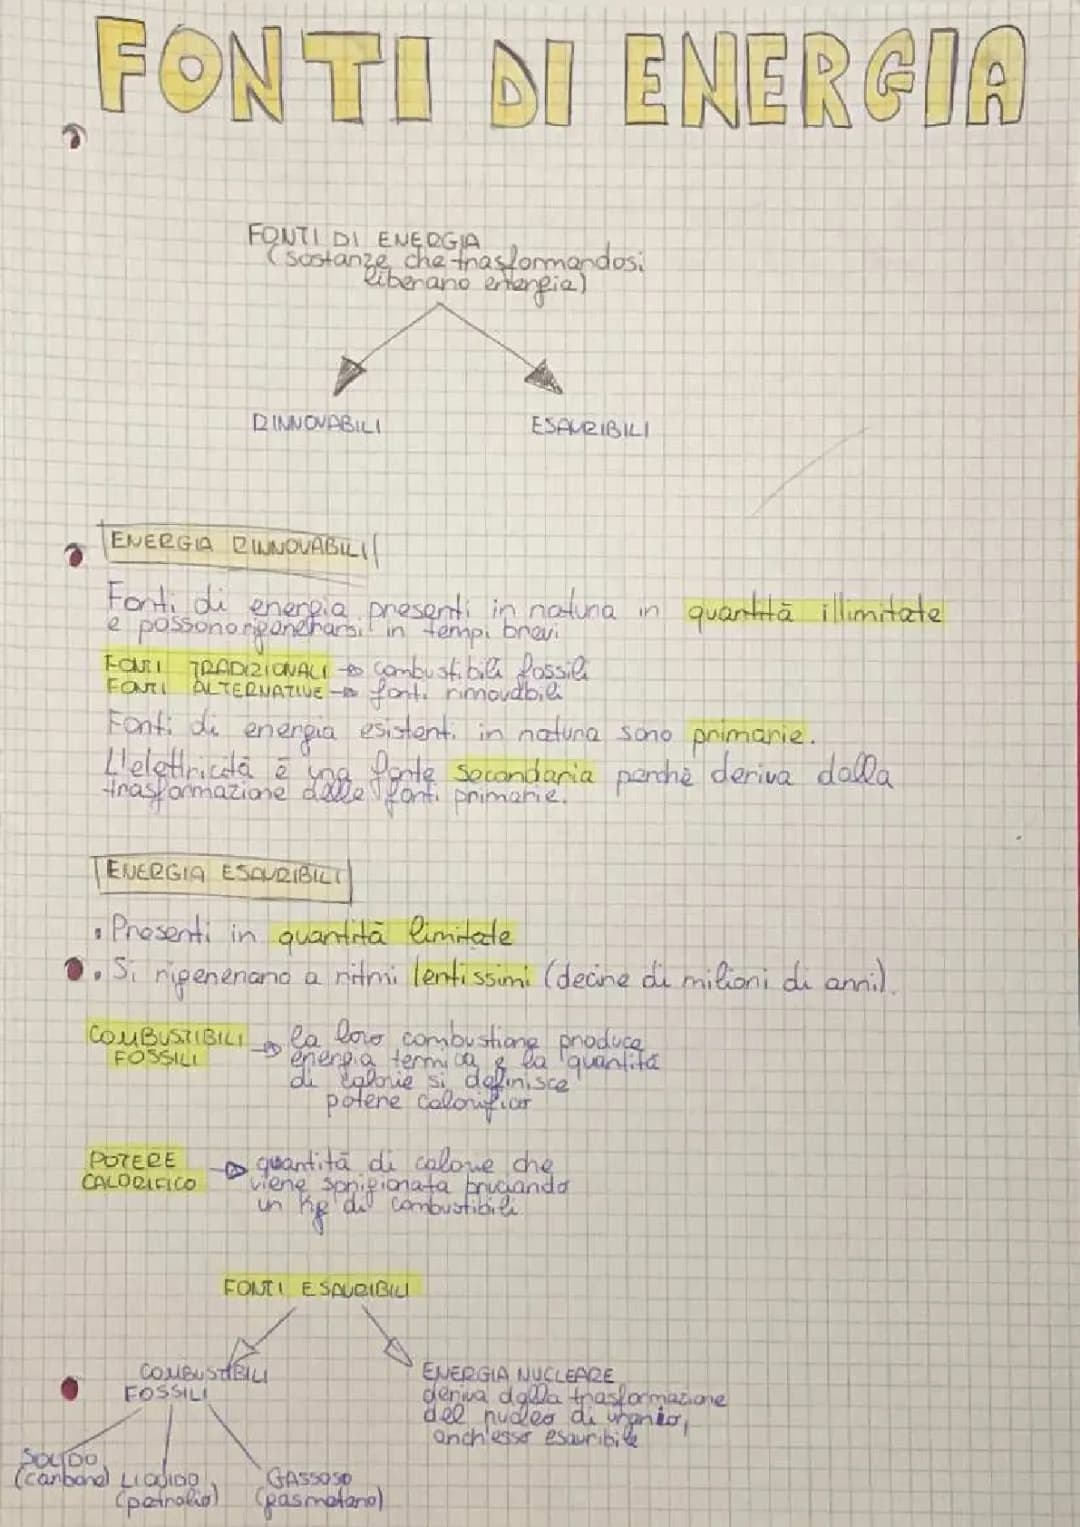 FONTI DI ENERGIA
FONTI DI ENERGIA
(sostanze che trasformandosi
liberano energia)
RINNOVABILI
ESAURIBILI
ENERGIA RINNOVABILI
Fonti di energia presenti in natura in quantità illimitate
e possono rigenerarsi in tempi brevi
FONTI TRADIZIONALI → combustibili fossili
FONTI ALTERNATIVE → fonti rinnovabili
Fonti di energia esistenti in natura sono primarie.
L'elettricità è una fonte secondaria perchè deriva dalla
trasformazione delle fonti primarie.
ENERGIA ESAURIBILI
• Presenti in quantità limitate
• Si rigenerano a ritmi lentissimi (decine di milioni di anni).
COMBUSTIBILI → la loro combustione produce
FOSSILI energia termica e la quantità
di calorie si definisce
potere calorifico
POTERE → quantità di calore che
CALORIFICO viene sprigionata bruciando
un kg di combustibili
FONTI ESAURIBILI
COMBUSTIBILI
FOSSILI
ENERGIA NUCLEARE
deriva dalla trasformazione
del nucleo di uranio,
anch'esso esauribile
SOLIDO
(carbone)
LIQUIDO
(petrolio)
GASSOSO
(gas metano)